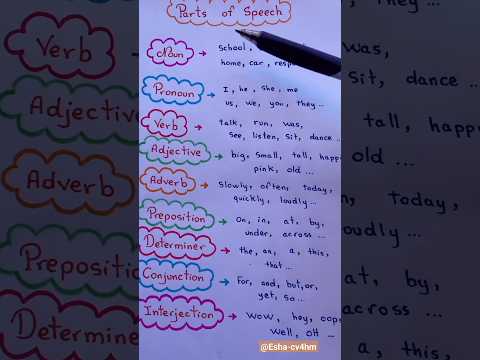 Parts of Speech
Noun → School,
home, car,
Pronoun → I, he, she, me
us, we, you, they...
Verb → talk, run, was,
See, listen, Sit, dance...
Adjective → big, Small, tall,
pink, old...
Adverb → Slowly, often, today,
quickly, loudly...
Preposition → On, in, at, by,
under, across...
Determiner → the, an, a, this,
that...
Conjunction → For, and, but, or,
yet, So...
Interjection → Wow, hey,
well,
@Esha-cv4hm
they...
Verb
was,
Sit, dance...
Adjective
tall,
old...
Adverb
today,
Preposition
at, by,
across...
Determiner
a, this,